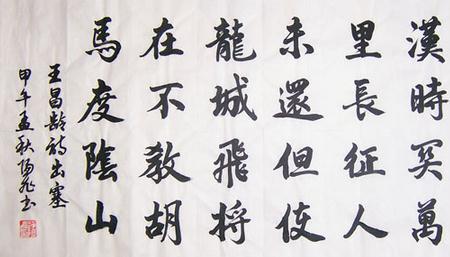 漢時关萬
里長征人
未還但使
龍城飛將
在不教胡
馬度陰山
王昌齡詩出塞
甲午孟秋书